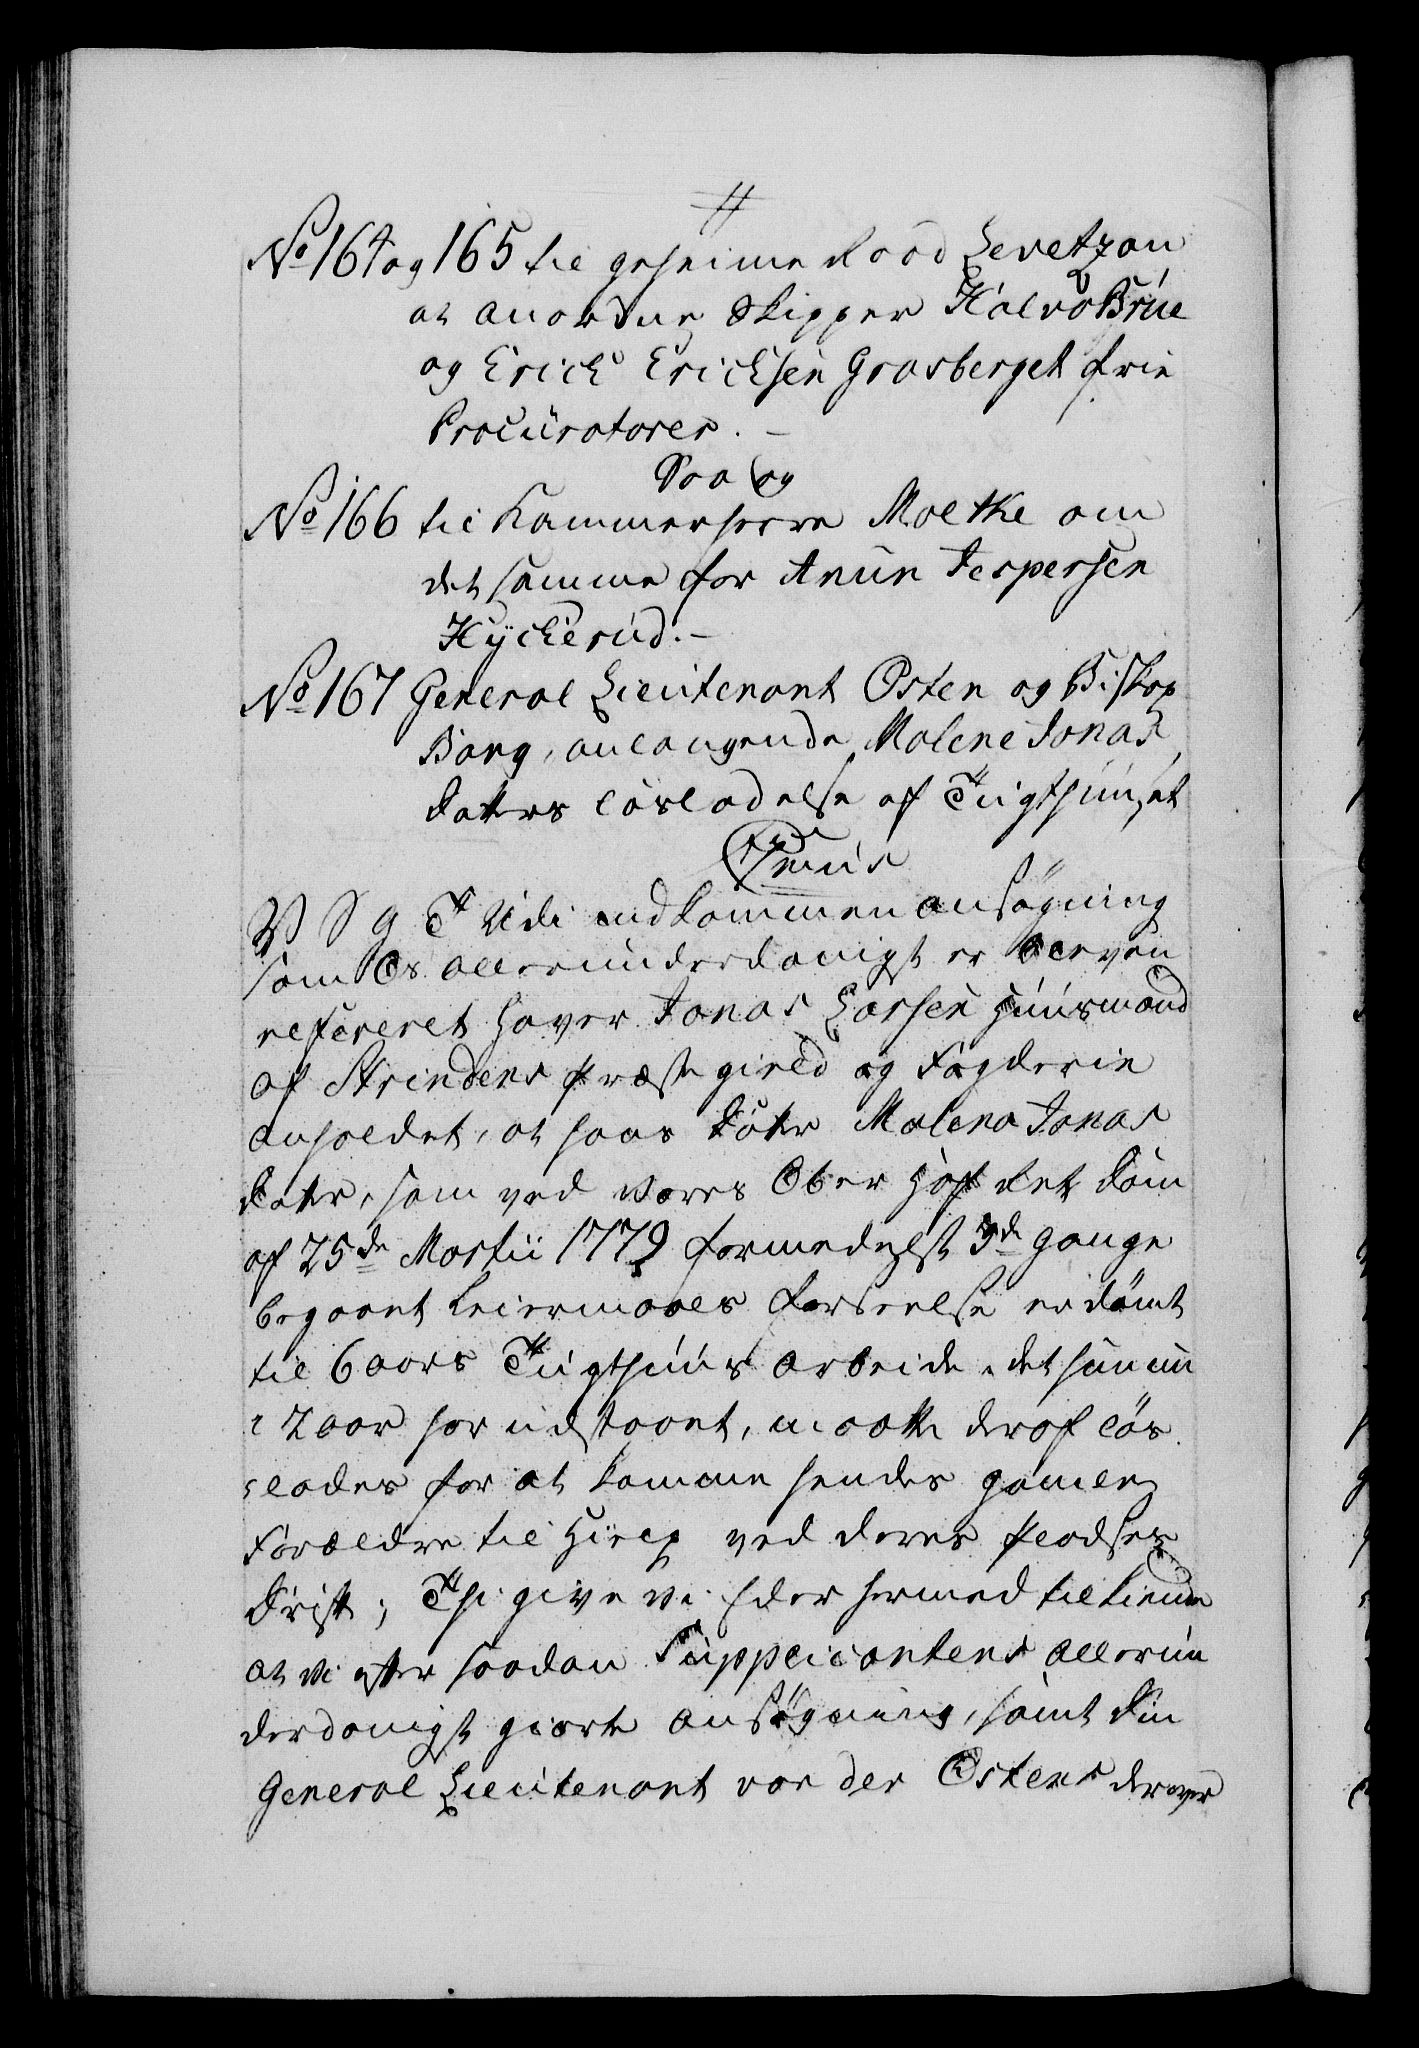 #
No 164 og 165 til geheime Raad Levetzau
at anordne Skipper Halvo Brüe
og Erich Erichsen Grasberget frie
Procüratorer. –
Saa og
No 166 til Kammerherre Moltke om
det samme for Anün Jespersen
Hÿckerüd. –
No 167 General Lieutenant Osten og Biskop
Bang, anlangende Malene Jonas
Datters lösladelse af Tügthüüset
C 7mus
V S G T Udi indkommen ansögning
som Os alleründerdanigst er bleven
refereret haver Jonas Larsen Hüüsmand
af Strindens Præstegield og Fogderie
anholdet, at hans Dötter Malena Jonas
Datter, som ved vores Ober Hof Ret Dom
af 25de Martii 1779 formedelst 3de gange
begaaet Leiermaals Forseelse er dömt
til 6 aars Tügthüüs Arbeide, det hun nü
i 2 aar har üdstaaet, maatte deraf lös
lades for at komme hendes gamle
Forældre til Hielp ved deres Pladses
Drift; Thi give vi Eder hermed tilkiende
at vi efter saadan Süpplicantens allerün
derdanigst giorte Ansögning, samt Din
General Lieutenant von der Ostens derover